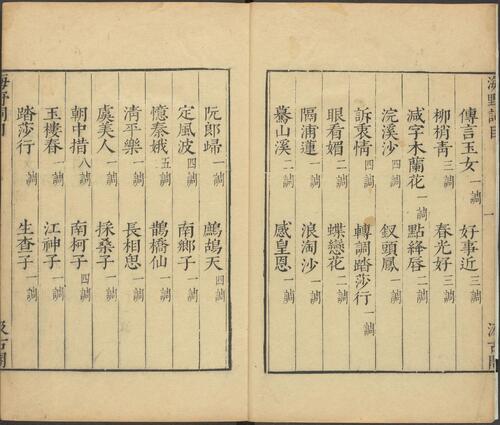 海野詞目 一 汲古閣
傳言玉女一調 好事近三調
柳梢青三調 春光好三調
減字木蘭花一調 點絳唇二調
浣溪沙四調 釵頭鳳一調
訴衷情四調 轉調踏莎行一調
眼看媚二調 蝶戀花二調
隔浦蓮一調 浪淘沙一調
驀山溪二調 感皇恩一調
阮郎歸一調 鷓鴣天四調
定風波四調 南鄉子一調
憶秦娥五調 鵲橋仙一調
清平樂一調 長相思一調
虞美人一調 採桑子一調
朝中措八調 南柯子四調
玉樓春一調 江神子一調
踏莎行一調 生查子一調
海野詞目 汲古閣